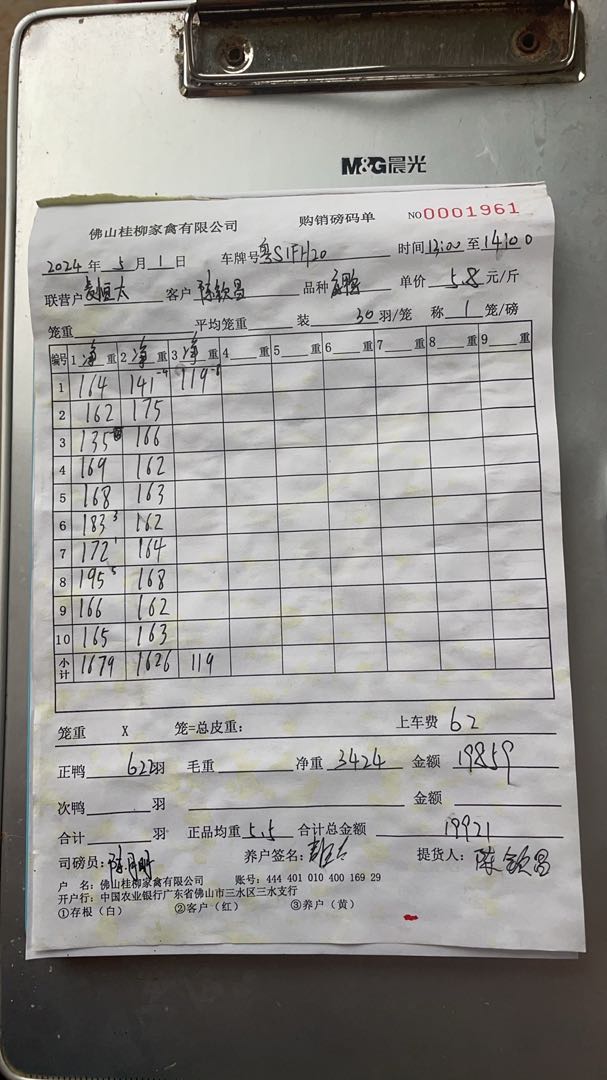 M&G晨光
佛山桂柳家禽有限公司 购销磅码单 NO0001961
2024年5月1日 车牌号粤S1FH20 时间13:00至14:00
联营户 恒太 客户陈钦昌 品种 鸭 单价5.8元/斤
笼重 平均笼重 装30羽/笼 称1笼/磅
编号 1净重 2净重 3净重 4重 5重 6重 7重 8重 9重
1 164 141-9 119-8
2 162 175
3 135 166
4 169 162
5 168 163
6 183³ 162
7 172¹ 164
8 195⁵ 168
9 166 162
10 165 163
小计 1679 1626 119
笼重 X 笼=总皮重: 上车费62
正鸭622羽 毛重 净重3424 金额19859
次鸭 羽 金额
合计 羽 正品均重5.5 合计总金额19921
司磅员:陈 养户签名: 提货人:陈钦昌
户 名:佛山桂柳家禽有限公司 账号:444 401 010 400 169 29
开户行:中国农业银行广东省佛山市三水区三水支行
①存根(白) ②客户(红) ③养户(黄)